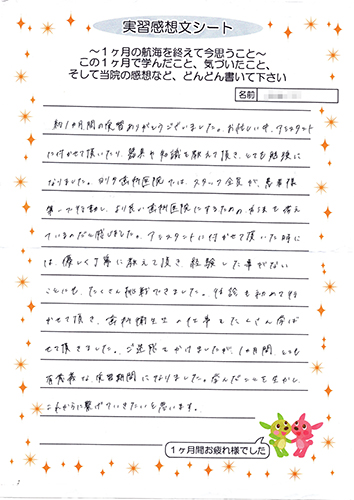 実習感想文シート
〜1ヶ月の航海を終えて今思うこと〜
この1ヶ月で学んだこと、気づいたこと、
そして当院の感想など、どんどん書いて下さい
名前
約1ヶ月間の実習ありがとうございました。お忙しい中、アシスタント
に付かせて頂いたり、器具や知識を教えて頂き、とても勉強に
なりました。 歯科医院では、スタッフ全員が、患者様
第一で行動し、より良い歯科医院にするための方法を考え
ているのだと感じました。アシスタントに付かせて頂いた時に
は、優しく丁寧に教えて頂き、経験した事がない
ことにも、たくさん挑戦できました。 も初めて行
かせて頂き、歯科衛生士の仕事をたくさん学ば
せて頂きました。ご迷惑をかけましたが、1ヶ月間、とても
有意義な実習期間になりました。学んだことを生かし、
これからに繋げていきたいと思います。
1ヶ月間お疲れ様でした